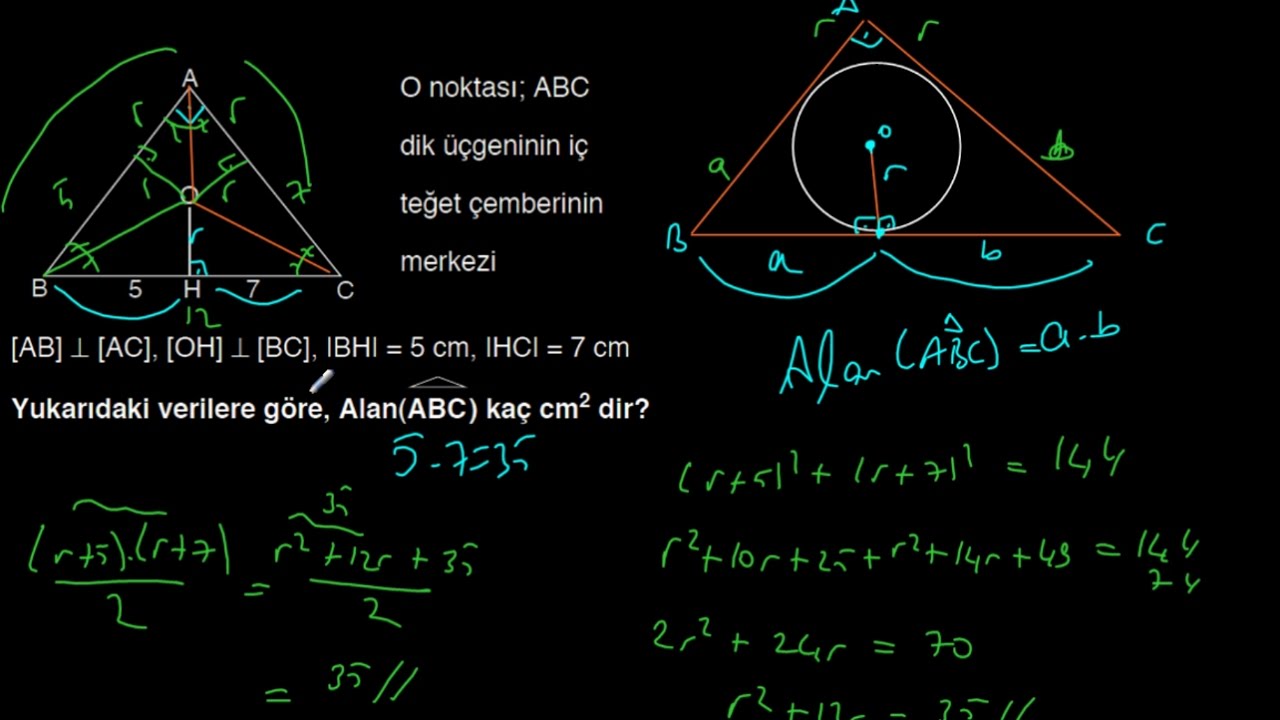 A
r r
x x
5 r O r 7
r
x x
B 5 H 7 C
12
O noktası; ABC
dik üçgeninin iç
teğet çemberinin
merkezi
[AB] ⊥ [AC], [OH] ⊥ [BC], IBHI = 5 cm, IHCI = 7 cm
Yukarıdaki verilere göre, Alan(ABC) kaç cm² dir?
5.7=35
(r+5).(r+7)/2 = (r²+12r+35)/2
35
= 35//
A
r r
O
a r b
B a b C
Alan(ABC) = a.b
(r+5)² + (r+7)² = 144
r²+10r+25+r²+14r+49 = 144
74
2r² + 24r = 70
r² + 12r = 35//